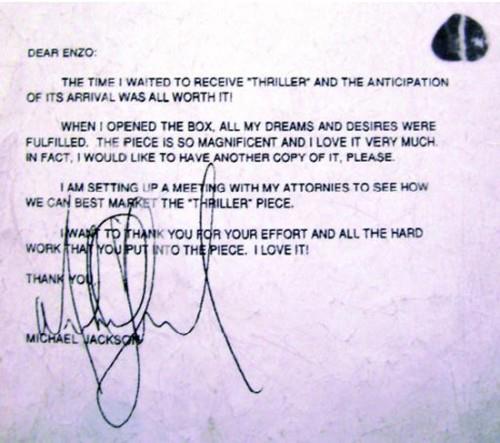 DEAR ENZO:
THE TIME I WAITED TO RECEIVE "THRILLER" AND THE ANTICIPATION
OF ITS ARRIVAL WAS ALL WORTH IT!
WHEN I OPENED THE BOX, ALL MY DREAMS AND DESIRES WERE
FULFILLED. THE PIECE IS SO MAGNIFICENT AND I LOVE IT VERY MUCH.
IN FACT, I WOULD LIKE TO HAVE ANOTHER COPY OF IT, PLEASE.
I AM SETTING UP A MEETING WITH MY ATTORNIES TO SEE HOW
WE CAN BEST MARKET THE "THRILLER" PIECE.
I WANT TO THANK YOU FOR YOUR EFFORT AND ALL THE HARD
WORK THAT YOU PUT INTO THE PIECE. I LOVE IT!
THANK YOU,
MICHAEL JACKSON